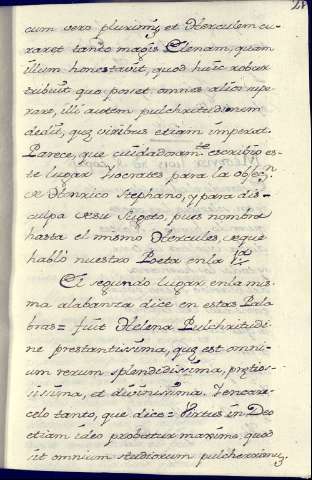 cum vero plurimũ, et Herculem cu-
raret tanto magis Elenam, quam
illum honestavit, quod huic robur
tribuit quo posset omnes alios supe-
rare, illi autem pulchritudinem
dedit, quę viribus etiam imperat.
Parece, que cuidadoram.te escribio es-
te lugar Ysocrates para la objeç.n
de Henrico Stephano, y para dis-
culpa de su Sugeto, pues nombra
hasta el mismo Hercules, de que
habló nuestro Poeta en la
El segundo lugar en la mis-
ma alabanza dice en estas Pala
bras = fuit Helena Pulchritudi-
ne prestantissima, quę est omni-
um rerum splendidissima, prętios-
issima, et divinissima. Y encare-
celo tanto, que dice = Virtus in Deo
etiam ideo probatur maxime, quod
sit omnium studiorum pulcherrimũ,